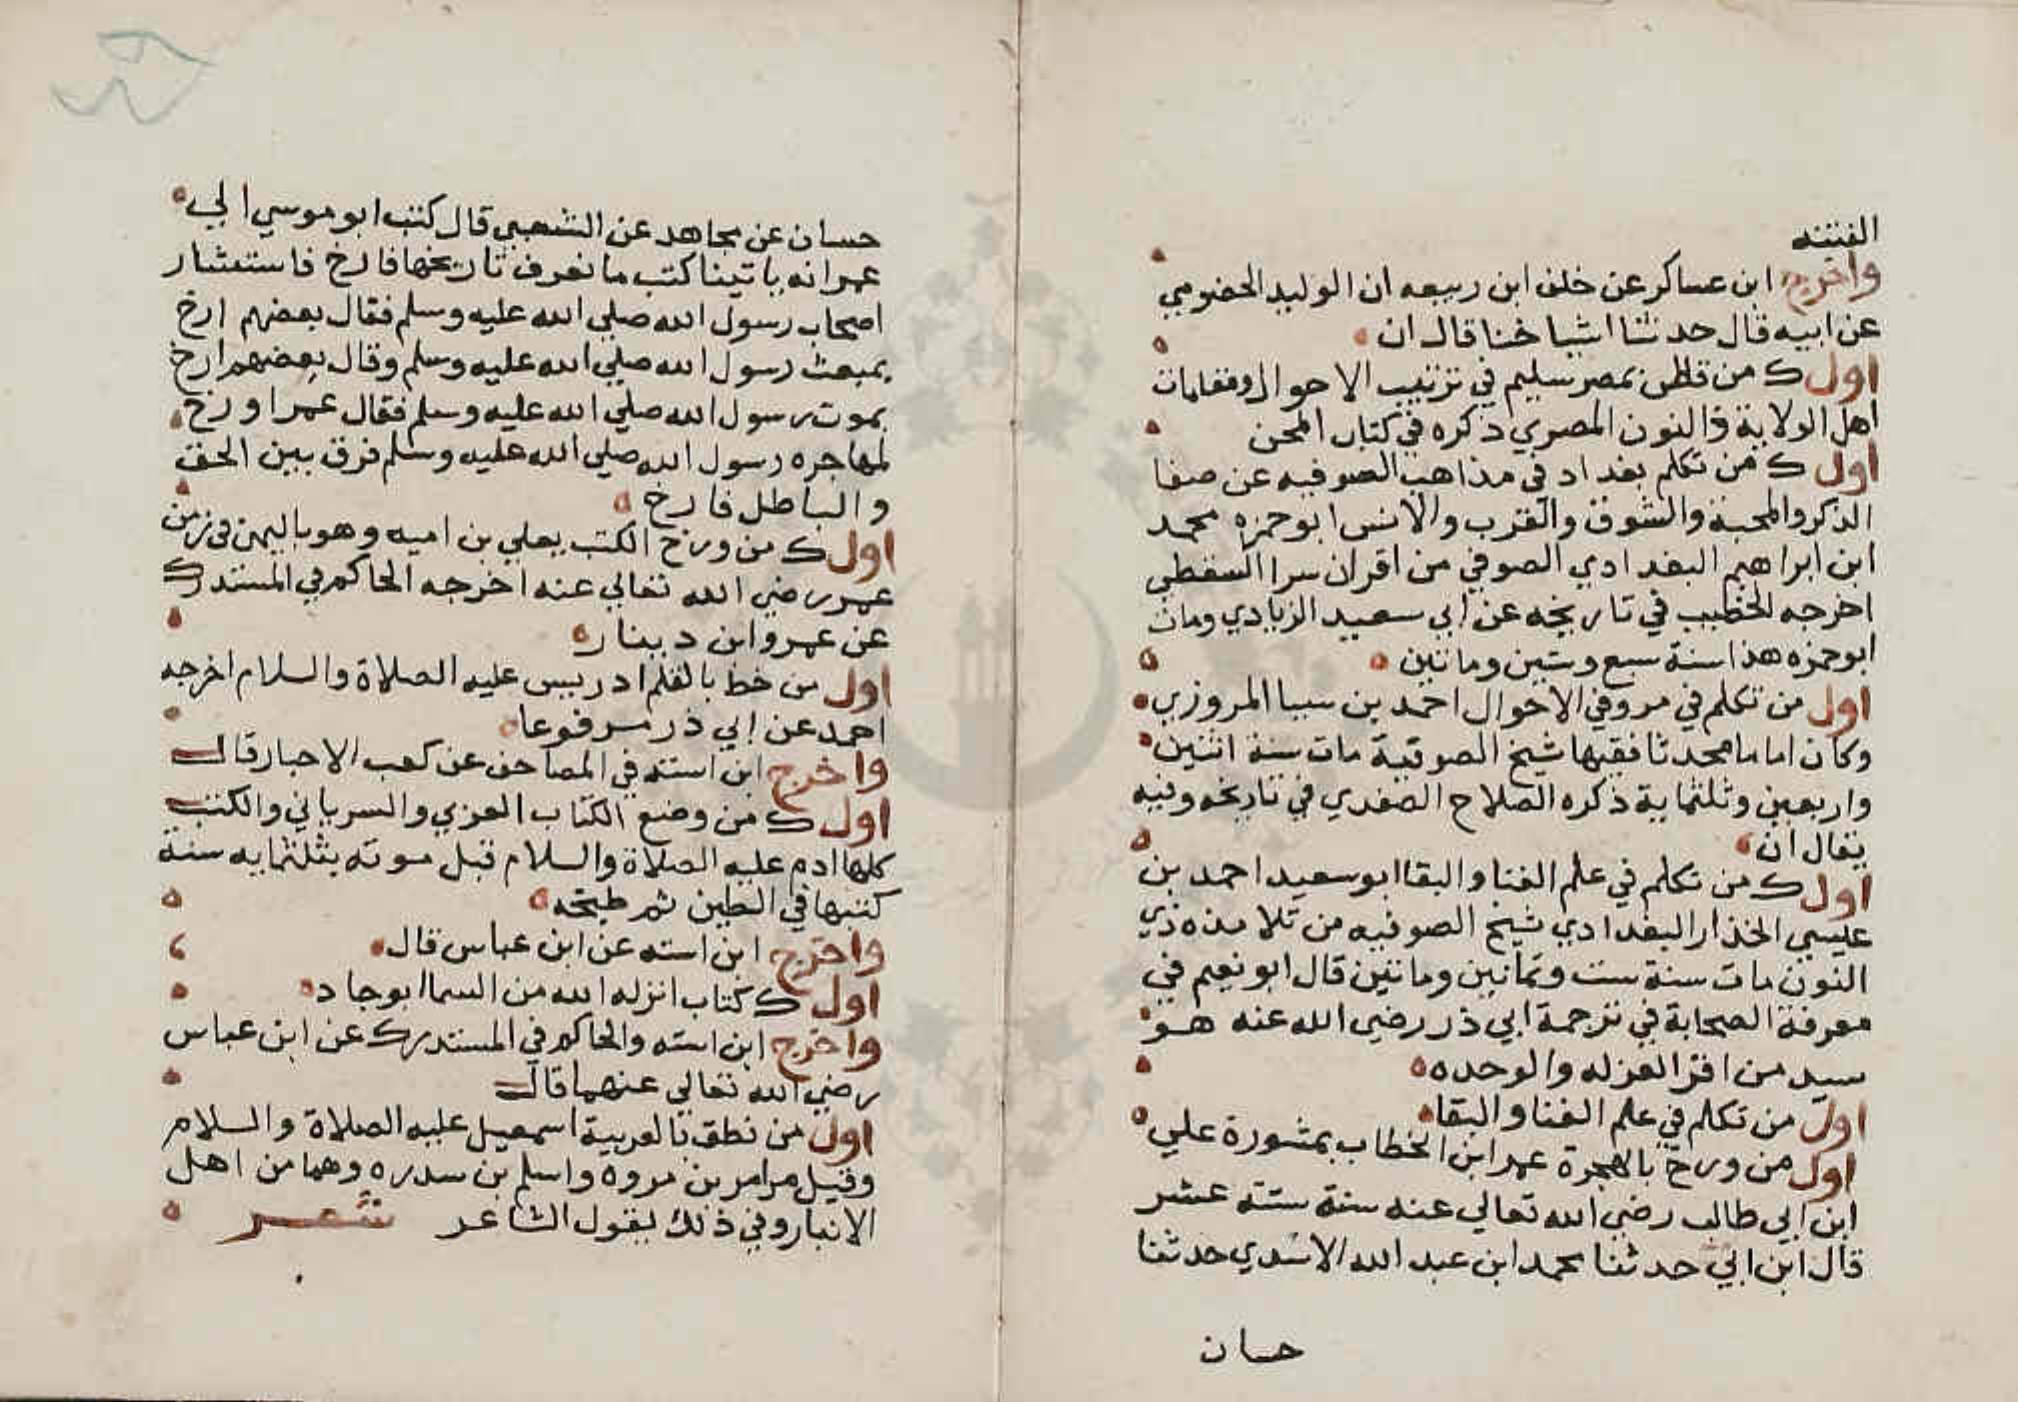 الفتنه
واخرج ابن عساكر عن خلف ابن ربيعه ان الوليد الحضرمي
عن ابيه قال حدثنا اشياخنا قال ان
اول من قطن بمصر سليم في ترتيب الاحوال ومقامات
اهل الولاية ذالنون المصري ذكره في كتاب المحن
اول من تكلم بغداد في مذاهب الصوفيه عن صفا
الذكر والمحبة والشوق والقرب والانس ابو حمزه محمد
ابن ابراهيم البغدادي الصوفي من اقران سرا السقطي
اخرجه الخطيب في تاريخه عن ابي سعيد الزيادي ومات
ابو حمزه هذا سنة سبع وستين وماتين
اول من تكلم في مرو في الاحوال احمد بن سيبا المروزي
وكان اماما محدثا فقيها شيخ الصوفية مات سنة اثنين
واربعين وثلثماية ذكره الصلاح الصفدي في تاريخه وفيه
يقال ان
اول من تكلم في علم الفنا والبقا ابو سعيد احمد بن
عيسي الخذار البغدادي شيخ الصوفيه من تلامذه ذي
النون مات سنة ست وثمانين وماتين قال ابو نعيم في
معرفة الصحابة في ترجمة ابي ذر رضي الله عنه هو
سيد من اقر العزله والوحده
اول من تكلم في علم الفنا والبقا
اول من ورخ بالهجرة عمر ابن الخطاب بمشورة علي
ابن ابي طالب رضي الله تعالي عنه سنة ستة عشر
قال ابن ابي حدثنا محمد ابن عبد الله الاسدي حدثنا
حسان
حسان عن مجاهد عن الشعبي قال كتب ابو موسي الي
عمر انه ياتينا كتب ما نعرف تاريخها فارخ فاستشار
اصحاب رسول الله صلي الله عليه وسلم فقال بعضهم ارخ
بمبعث رسول الله صلي الله عليه وسلم وقال بعضهم ارخ
بموت رسول الله صلي الله عليه وسلم فقال عمر اورخ
لمهاجره رسول الله صلي الله عليه وسلم فرق بين الحق
والباطل فارخ
اول من ورخ الكتب يعلي بن اميه وهو باليمن في زمن
عمر رضي الله تعالي عنه اخرجه الحاكم في المستدرك
عن عمرو ابن دينار
اول من خط بالقلم ادريس عليه الصلاة والسلام اخرجه
احمد عن ابي ذر مرفوعا
واخرج ابن استه في المصاحف عن كعب الاحبار قال
اول من وضع الكتاب العربي والسرياني والكتب
كلها ادم عليه الصلاة والسلام قبل موته بثلثمايه سنة
كتبها في الطين ثم طبخه
واخرج ابن استه عن ابن عباس قال
اول كتاب انزله الله من السما ابو جاد
واخرج ابن استه والحاكم في المستدرك عن ابن عباس
رضي الله تعالي عنهما قال
اول من نطق بالعربية اسمعيل عليه الصلاة والسلام
وقيل مرامر بن مروه واسلم بن سدره وهما من اهل
الانبار وفي ذلك يقول الشاعر شعر